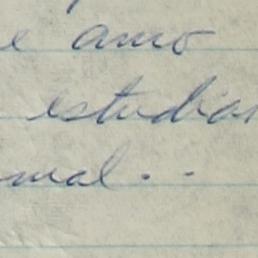 e amo
estudian
mal..